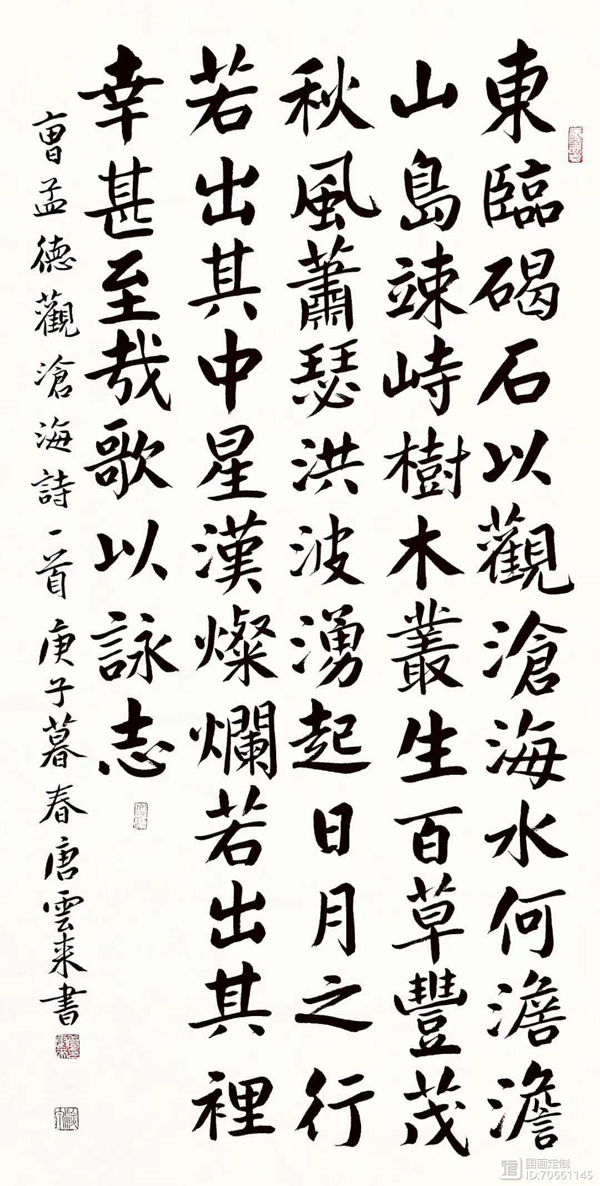 東臨碣石以觀滄海水何澹澹
山島竦峙樹木叢生百草豐茂
秋風蕭瑟洪波湧起日月之行
若出其中星漢燦爛若出其裡
幸甚至哉歌以詠志
曹孟德觀滄海詩一首庚子暮春唐雲来書
国画定制
ID:70661145